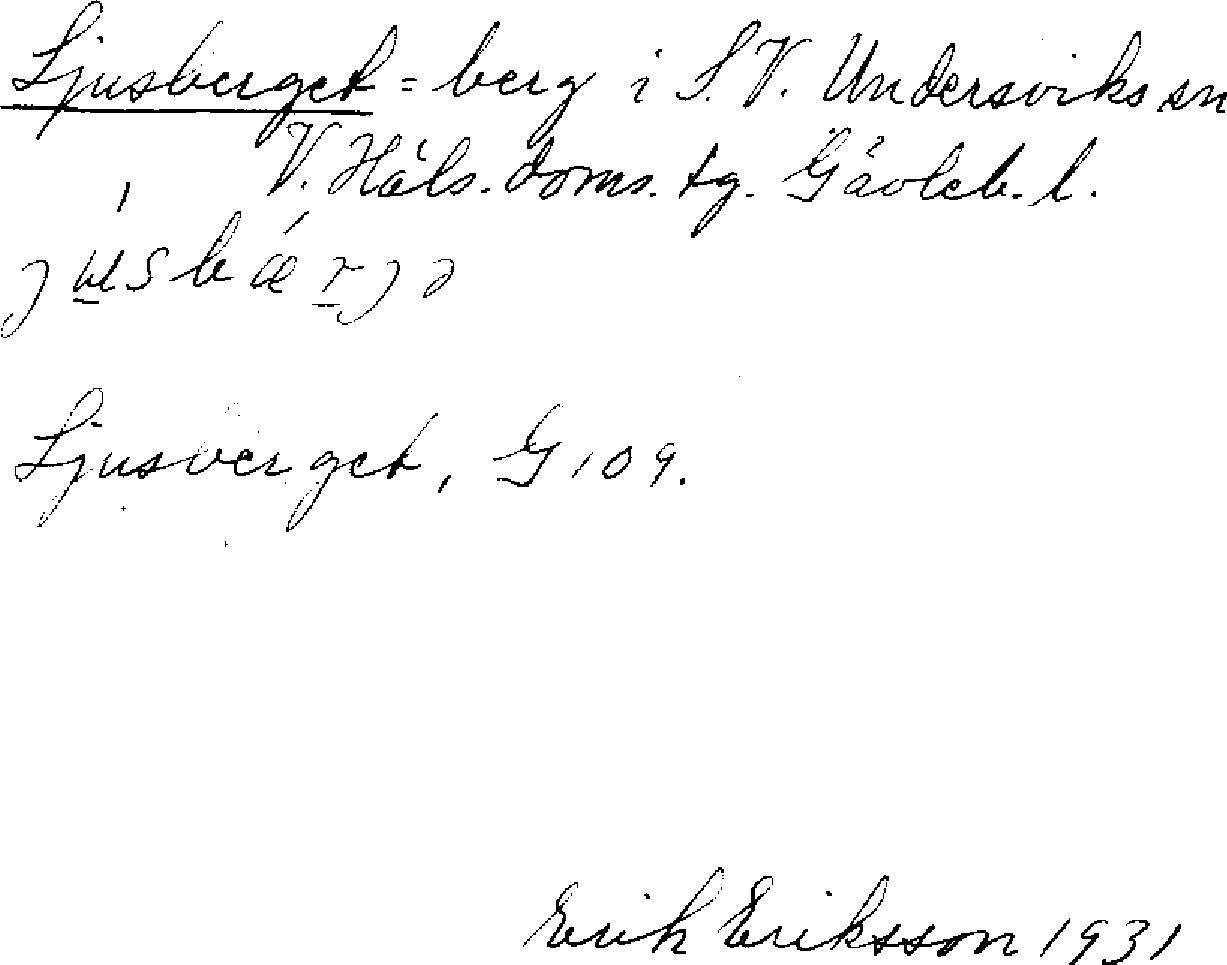 Ljusberget = berg i S.V. Undersviks sn
V. Häls. doms. tg. Gävleb. l.
jùsbǽrjə
Ljusberget, G 109.
Erik Eriksson 1931